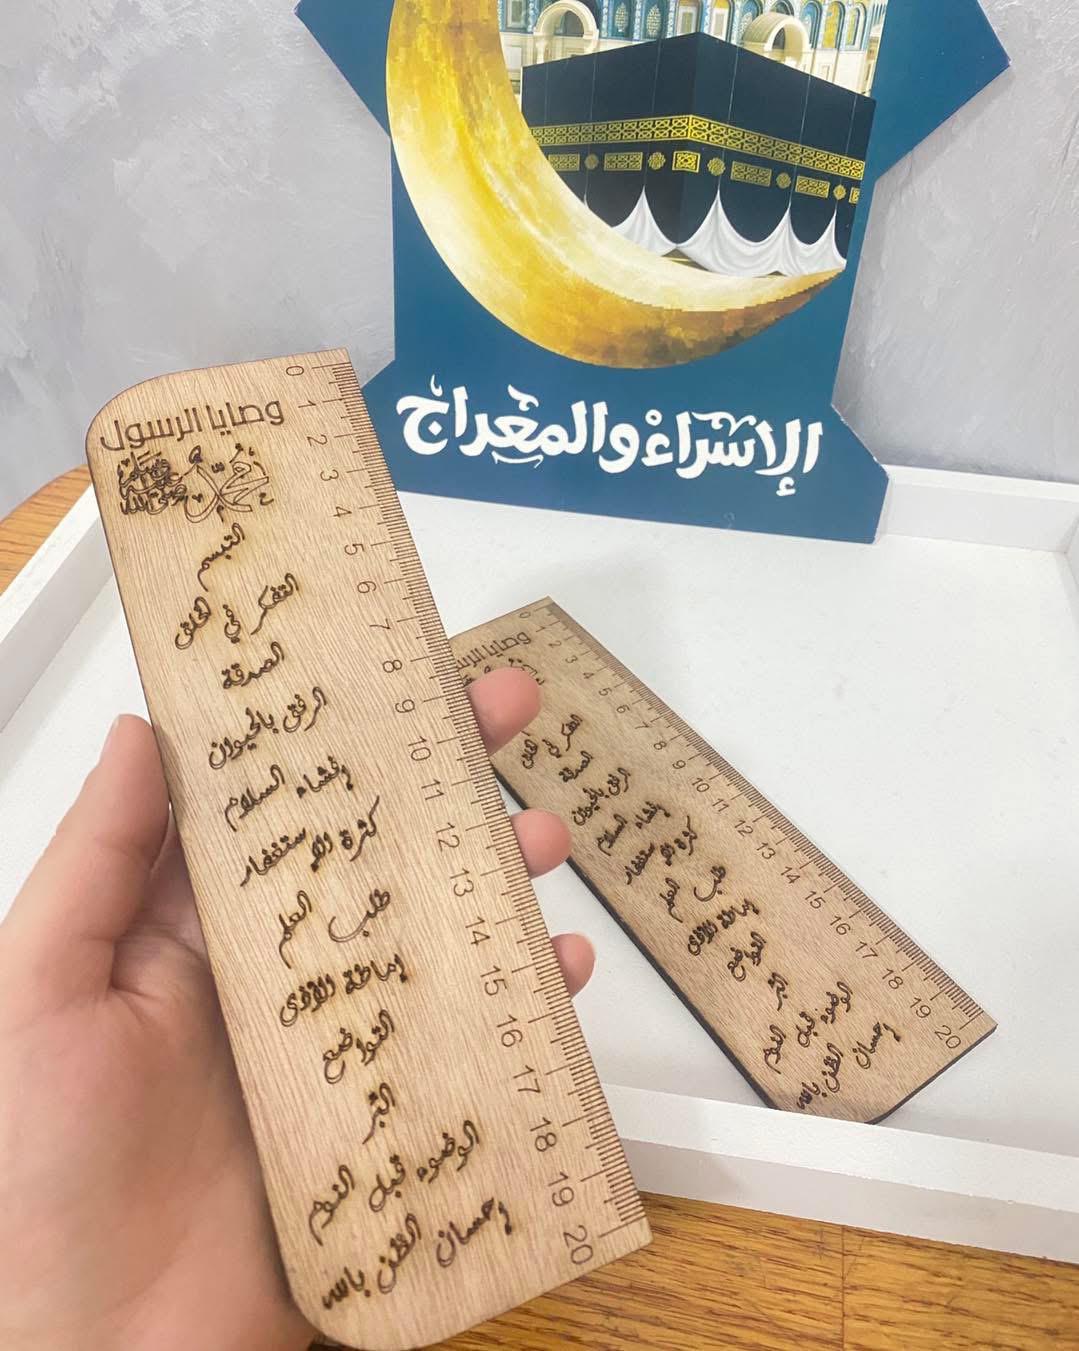 الإسراء والمعراج
وصايا الرسول
محمد صلى الله عليه وسلم
التبسم
التفكر في الخلق
الصدقة
الرفق بالحيوان
إفشاء السلام
كثرة الاستغفار
طلب العلم
إماطة الأذى
التواضع
البر
الوضوء قبل النوم
إحسان الظن بالله
0
1
2
3
4
5
6
7
8
9
10
11
12
13
14
15
16
17
18
19
20
وصايا الرسول
التفكر في الخلق
الصدقة
الرفق بالحيوان
إفشاء السلام
كثرة الاستغفار
طلب العلم
إماطة الأذى
التواضع
البر
الوضوء قبل النوم
إحسان الظن بالله
0
1
2
3
4
5
6
7
8
9
10
11
12
13
14
15
16
17
18
19
20